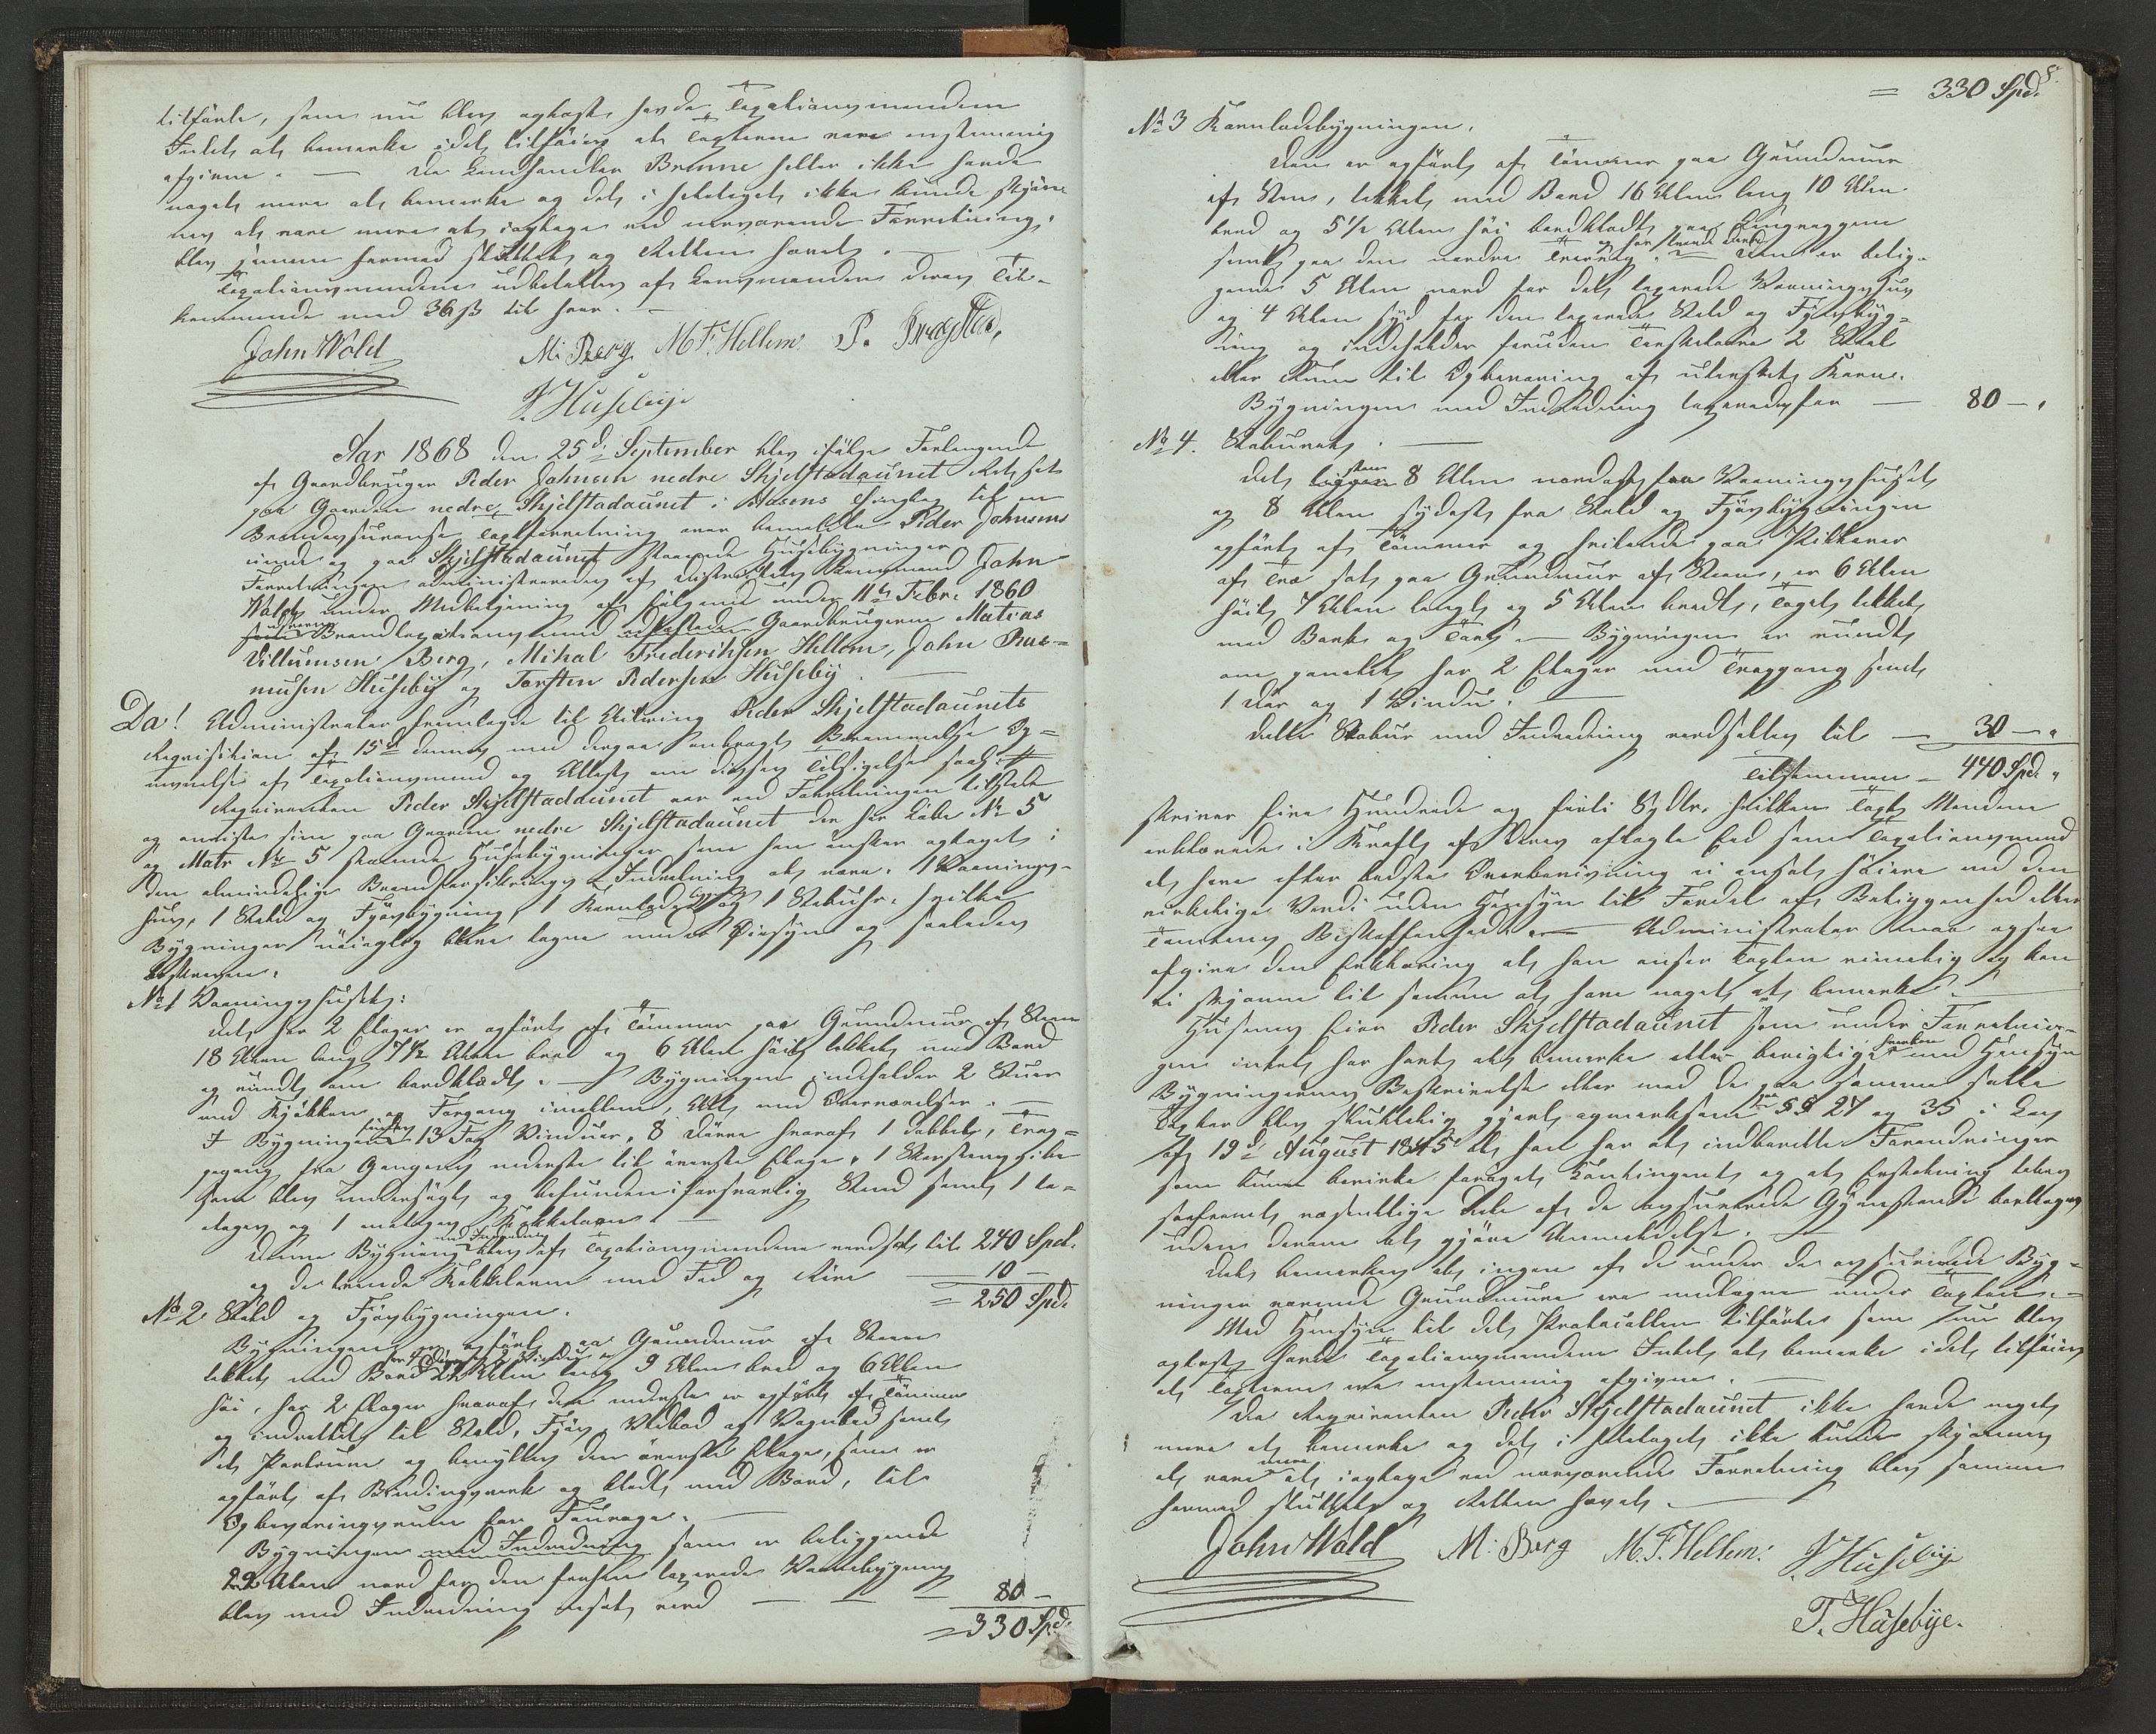 tilførte, som nu blev oplæst havde Taxationsmændene
Intet at bemærke idet tilføies at Taxterne vare enstemmig
afgivne. — Da Landhandler Brenne heller ikke havde
noget mere at bemærke og det i heletaget ikke kunde skjøn-
nes at være mere at iagttage ved nærværende Forretning,
blev samme hermed sluttet og Retten hævet. —
Taxationsmændene udbetaltes af Lensmanden deres Til-
kommende med 36 ß til hver. —
John Wold M. Berg M. F. Hellem P.
J. Husebye
Aar 1868 den 25de September blev ifølge Forlangende
af Gaardbruger Peder Johnsen nedre Skjelstadaunet Ret sat
paa Gaarden nedre Skjelstadaunet i Aasens Thinglag til en
Brandassurance Taxtforretning over bemeldte Peder Johnsens
eiende og paa Skjelstadaunet staaende Husebygninger
Forretningen administreredes af Distriktets Lensmand John
Wold under Medbetjening af følgende under 11te Febr. 1860
udnævnte Brandtaxationsmænd Gaardbrugerne Matias
Villumsen Berg, Mikal Frederiksen Hellem, John Ras-
musen Huseby og Torsten Pedersen Huseby. —
Da! Administrator fremlagde til Akitering Peder Skjelstadaunets
Requisition af 15de dennes med derpaa anbragt Berammelse Op-
nævnelse af Taxationsmænd og Attest om disses Tilsigelse saal:
Requirenten Peder Skjelstadaunet var ved Forretningen tilstede
og anviste sine paa Gaarden nedre Skjelstadaunet der har Løbe No 5
og Matr No 5 staaende Husebygninger som han ønsker optaget i
den almindelige Brandforsikrings Indretning at være: 1 Vaanings-
huus, 1 Stald og Fjøsbygning, 1 Kornladebygn: og 1 Stabuhr, hvilke
Bygninger nøiagtig bleve tagne under Øiesyn og saaledes
beskrevne:
No 1 Vaaningshuset:
Det har 2 Etager er opført af Tømmer paa Grundmuur af Steen
18 Alen lang 7½ Alen bred og 6 Alen høit tækket med Bord
og rundt om bordklædt. — Bygningen indeholder 2 Stuer
med Kjøkken og Forgang imellem, Alt med Overværelser. —
I Bygningen findes 13 Fag Vinduer, 8 Dørre hvoraf 1 dobbelt, Trap-
pegang fra Gangens nederste til øverste Etage, 1 Skorstenspibe
som blev undersøgt og befunden i forsvarlig Stand samt 1 to-
etages og 1 enetages Kakkelovn. —
Denne Bygning med Indredning blev af Taxationsmændene værdsat til 240 Spd.
og de tvende Kakkelovne med Fod og Rør — 10 —
= 250 Spd.
No 2 Stald og Fjøsbygningen.
Bygningen er opført paa Grundmuur af Steen
tækket med Bord 22 Alen lang 9 Alen bred og 6 Alen
høi, har 2 Etager hvoraf den nederste er opført af Tømmer
og indrettet til Stald, Fjøs, Vedbod og Vognbod samt
et Portrum og benyttes den øverste Etage, som er
opført af Bindingsværk og klædt med Bord, til
Opbevaringsrum for Fourage. —
Bygningen med Indredning som er beliggende
22 Alen nord for den forhen taxerede Vaanebygning
blev med Indredning ansat værd — — — 80 —
= 330 Spd.
8.
= 330 Spd.
No 3 Kornladebygningen.
Den er opført af Tømmer paa Grundmuur
af Steen, tækket med Bord 16 Alen lang 10 Alen
bred og 5½ Alen høi bordklædt paa Langvæggene
samt paa den nordre Tværvæg. og har tvende Dørre — Den er belig-
gende 5 Alen nord for det taxerede Vaaningshus
og 4 Alen syd for den taxerede Stald og Fjøsbyg-
ning og indeholder foruden Tærskelaave 2 Staal
eller Rum til Opbevaring af utærsket Korn.
Bygningen med Indredning taxeredes for — 80 — „
No 4. Staburet. —
Det staar 8 Alen nordost fra Vaaningshuset
og 8 Alen sydost fra Stald og Fjøsbygningen
opført af Tømmer og hvilende paa Stikkener
af Træ sat paa Grundmuur af Steen, er 6 Alen
høit, 7 Alen langt og 5 Alen bredt, Taget tækket
med Bark og Torv. — Bygningen er rundt
om panelet har 2 Etager med Trapgang samt
1 Dør og 1 Vindue. —
dette Stabur med Indredning værdsattes til — 30 — „
Tilsammen — 440 Spd. „
skriver fire Hundrede og firti Spdlr. hvilken Taxt Mændene
erklærede i Kraft af deres aflagte Eed som Taxationsmænd
at have efter bedste Overbeviisning ei ansat høiere end den
virkelige Værdi uden Hensyn til Fordel af Beliggenhed eller
Tomtens Beskaffenhed. — Administrator maa ogsaa
afgive den Erklæring at han anser Taxten rimelig og kan
ei skjønne til samme at have noget at bemærke. —
Husenes Eier Peder Skjelstadaunet som under Forretnin-
gen intet har havt at bemærke eller berigtige hverken med Hensyn
Bygningernes Beskrivelse eller med de paa samme satte
Taxter blev skikkelig gjort opmærksom paa §§ 27 og 35 i Lov
af 19de August 1845 at han har at indberette Forandringer
som kunne bevirke forøget Kontingent og at Erstatning tabes
saafremt væsentlige Dele af de assurerede Gjenstande borttages
uden derom at gjøre Anmeldelse. —
Det bemærkes at ingen af de under de assurerede Byg-
ninger værende Grundmure ere medtagne under Taxten. —
Med Hensyn til det Protocollen tilførte som nu blev
oplæst havde Taxationsmændene Intet at bemærke idet tilføies
at Taxterne ere enstemmig afgivne. —
Da Requirenten Peder Skjelstadaunet ikke havde noget
mere at bemærke og det i heletaget ikke kunde skjønnes
at være mere at iagttage ved nærværende Forretning blev samme
hermed sluttet og Retten hævet. —
John Wold M. Berg M. F. Hellem. J. Husebye
T. Husebye.